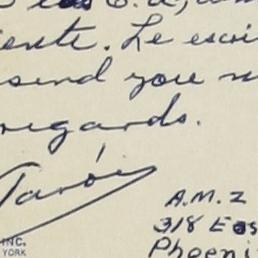 ente. Le escri
send you
regards.
A.M.Z
318 Eas
Phoeni
INC.
YORK